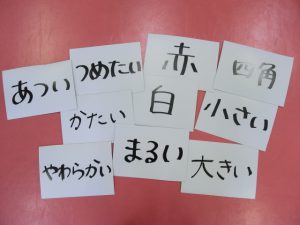 あつい
つめたい
赤
四角
かたい
白
小さい
やわらかい
まるい
大きい